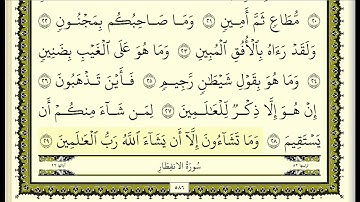 ٢٠ مُّطَاعٍ ثَمَّ أَمِينٍ ٢١ وَمَا صَاحِبُكُم بِمَجْنُونٍ ٢٢
وَلَقَدْ رَءَاهُ بِٱلْأُفُقِ ٱلْمُبِينِ ٢٣ وَمَا هُوَ عَلَى ٱلْغَيْبِ بِضَنِينٍ
٢٤ وَمَا هُوَ بِقَوْلِ شَيْطَٰنٍ رَّجِيمٍ ٢٥ فَأَيْنَ تَذْهَبُونَ ٢٦
إِنْ هُوَ إِلَّا ذِكْرٌ لِّلْعَٰلَمِينَ ٢٧ لِمَن شَآءَ مِنكُمْ أَن
يَسْتَقِيمَ ٢٨ وَمَا تَشَآءُونَ إِلَّآ أَن يَشَآءَ ٱللَّهُ رَبُّ ٱلْعَٰلَمِينَ ٢٩
سُورَةُ الانفِطَارِ
٥٨٦